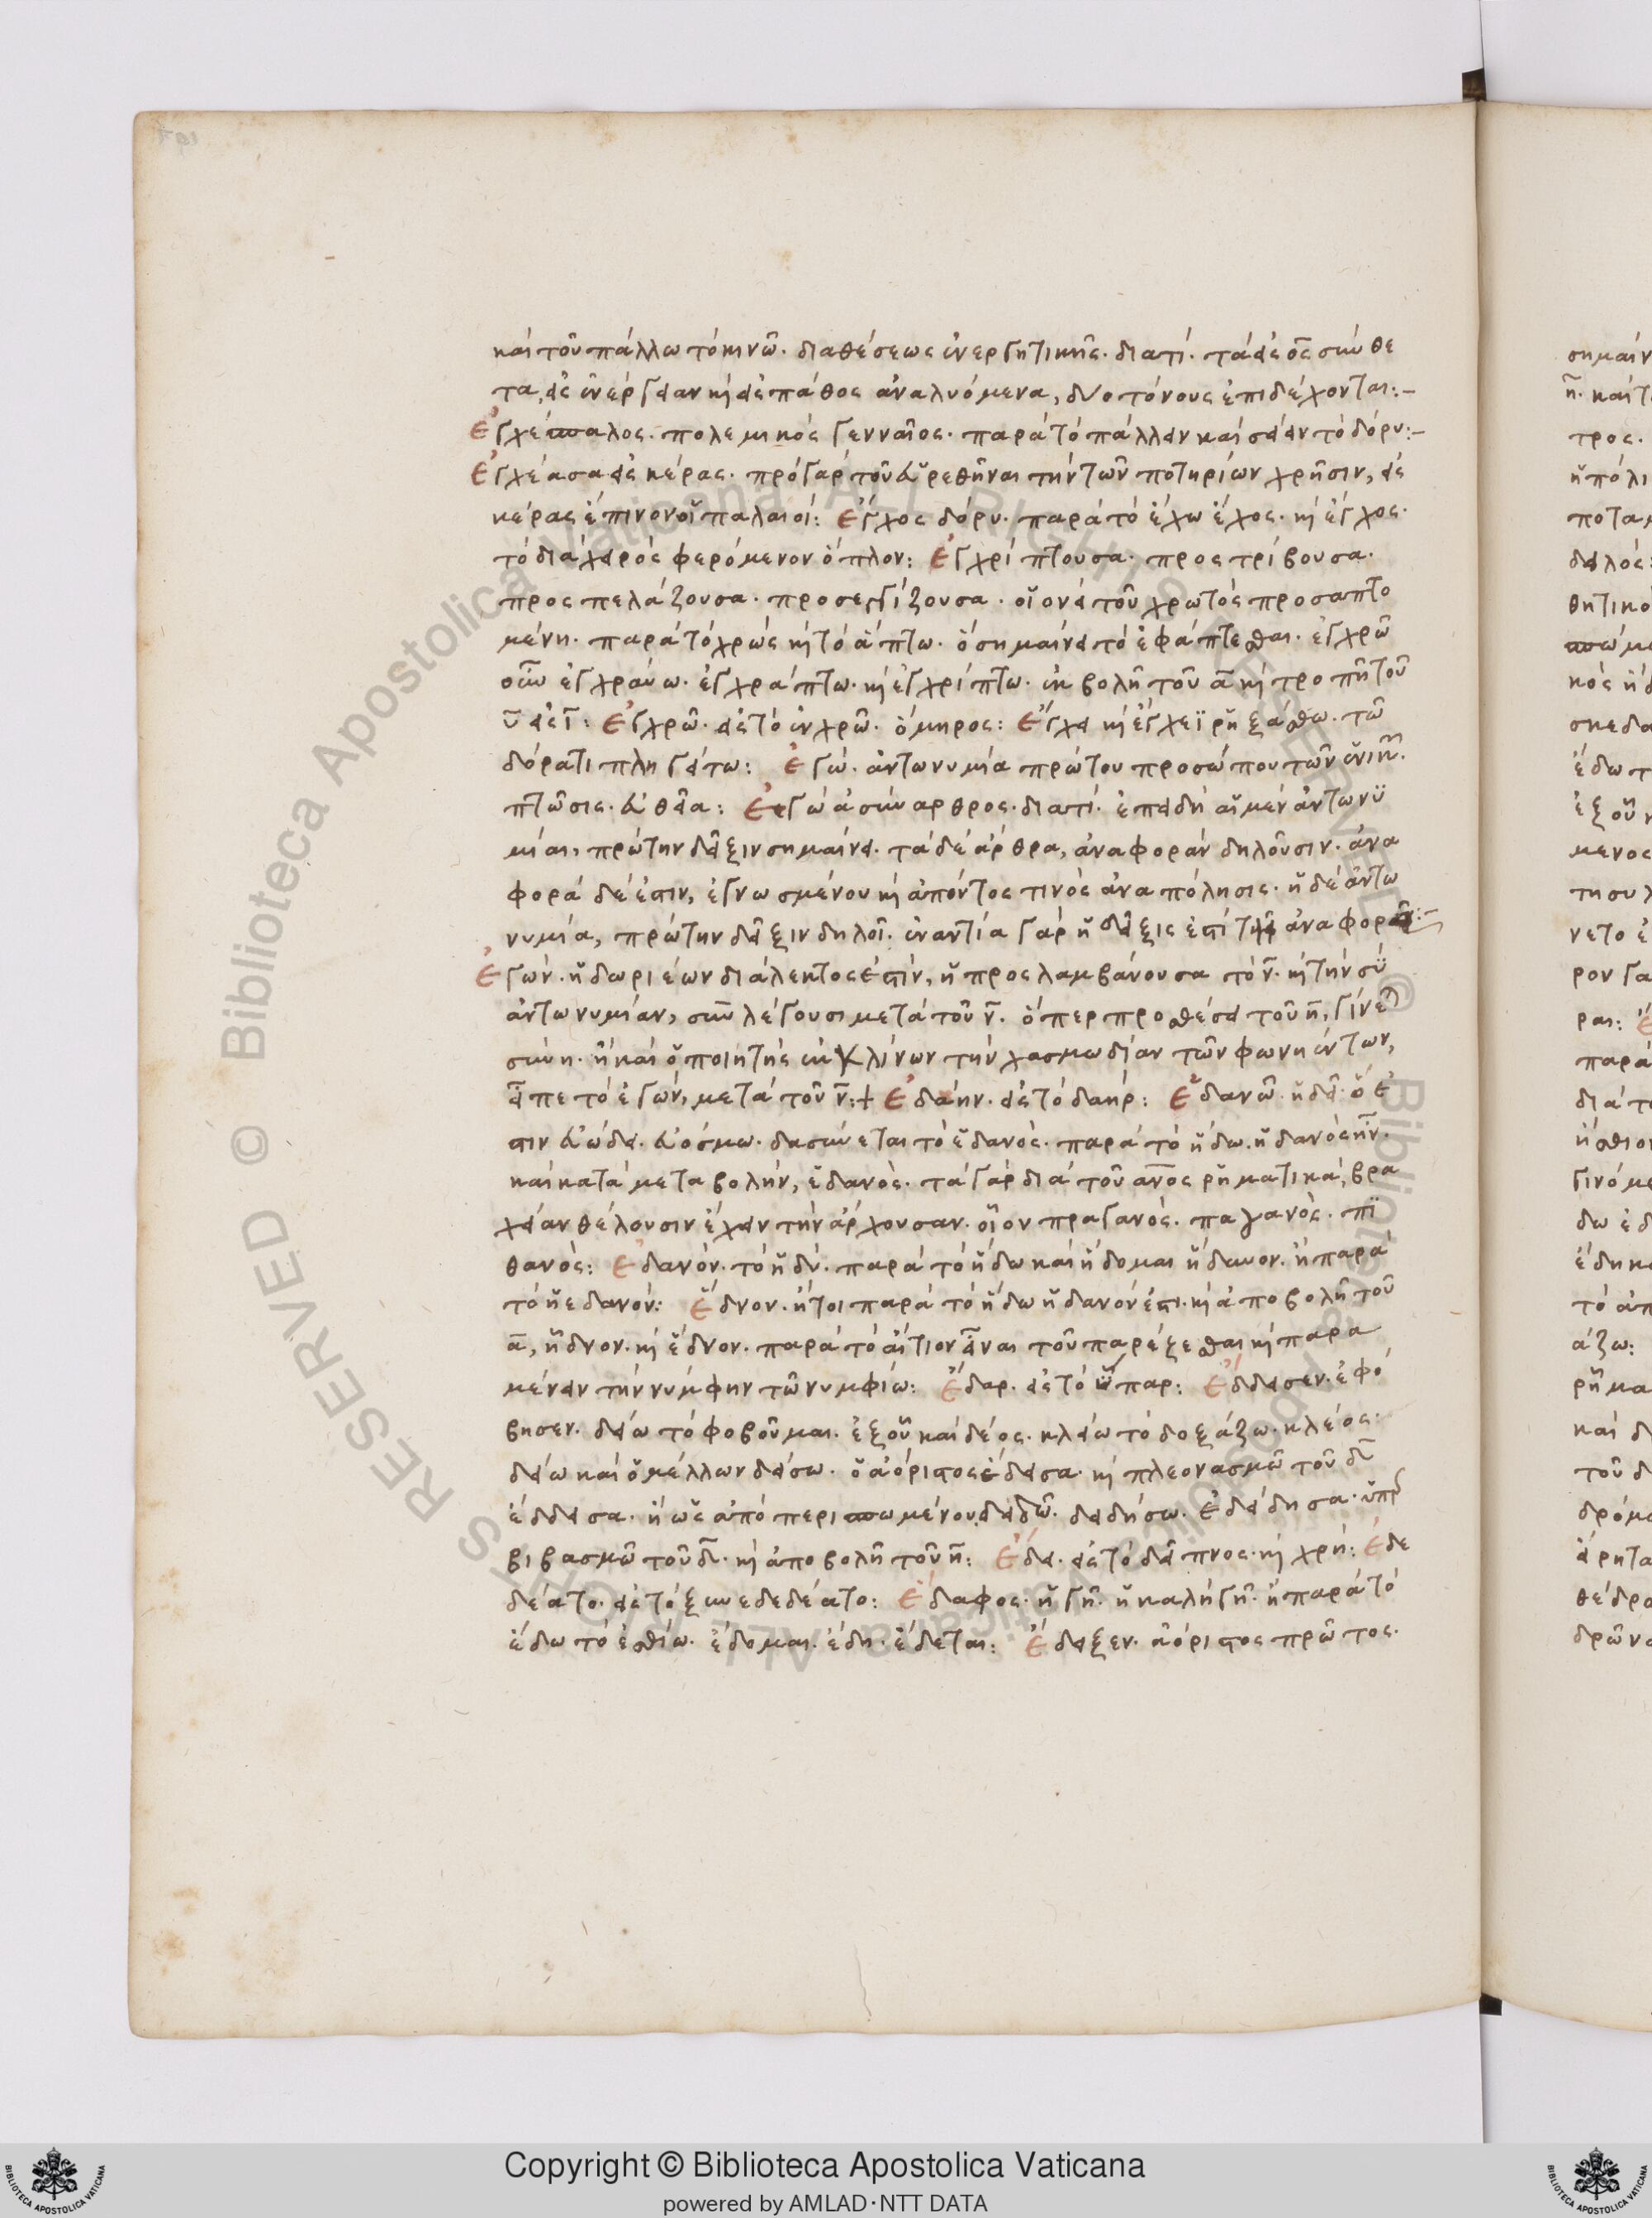 καὶ τοῦ πάλλω τὸ κινῶ. διαθέσεως ἐνεργητικῆς. διατί. τὰ εἰς ο̅ς̅ σύνθε
τα, εἰς ἐνέργειαν κὶ εἰς πάθος ἀναλυόμενα, δύο τόνους ἐπιδέχονται:–
Ἐγχέσπαλος. πολεμικὸς γενναῖος. παρὰ τὸ πάλλειν καὶ σείειν τὸ δόρυ:–
Ἐγχέασα εἰς κέρας. πρὸ γὰρ τοῦ εὑρεθῆναι τὴν τῶν ποτηρίων χρῆσιν, εἰς
κέρας ἔπινον οἱ παλαιοί: Ἔγχος δόρυ. παρὰ τὸ ἔχω ἔχος. κὶ ἔγχος.
τὸ διὰ χειρὸς φερόμενον ὅπλον: Ἐγχρίπτουσα. προς τρίβουσα.
προς πελάζουσα. προσεγγίζουσα. οἱονεὶ τοῦ χρωτὸς προσαπτο
μένη. παρὰ τὸ χρὼς κὶ τὸ ἅπτω. ὃ σημαίνει τὸ ἐφάπτεσθαι. ἐγχρῶ
οὖν ἐγχραύω. ἐγχράπτω. κὶ ἐγχρίπτω. ἐκβολῆ τοῦ α̅ κὶ τροπῆ τοῦ
υ̅ εἰς ι̅: Ἐγχρῶ. εἰς τὸ ἐν χρῶ. ὅμηρος: Ἔγχει κὶ ἔγχεϊ ῥηξάσθω. τῶ
δόρατι πληγάτω: Ἐγώ. ἀντωνυμία πρώτου προσώπου τῶν ἑνικῶν.
πτῶσις. εὐθεῖα: Ἐγὼ ἀσύναρθρος. διατί. ἐπειδὴ αἱ μὲν ἀντωνυ
μίαι, πρώτην δεῖξιν σημαίνει. τὰ δὲ ἄρθρα, ἀναφορὰν δηλοῦσιν. ἀνα
φορὰ δέ ἐστιν, ἐγνωσμένου κὶ ἀπόντος τινὸς ἀναπόλησις. ἡ δὲ ἀντω
νυμία, πρώτην δεῖξιν δηλοῖ. ἐναντία γὰρ ἡ δεῖξις ἐστὶ τῆ ἀναφορᾶ:–
Ἐγών. ἡ δωριέων διάλεκτος ἐστὶν, ἡ προς λαμβάνουσα τὸ ν̅. κὶ τὴν σὺ
ἀντωνυμίαν, σὺν λέγουσι μετὰ τοῦ ν̅. ὅπερ προσθέσει τοῦ η̅, γίνε
σύνη. ἧ καὶ ὁ ποιητὴς ἐκκλίνων τὴν χασμωδίαν τῶν φωνηέντων,
εἶπε τὸ ἐγών, μετὰ τοῦ ν̅:+ Ἐδάην. εἰς τὸ δαήρ: Ἑδανῶ. ἡδεῖ. ὅ ἐ
στιν εὐώδει. εὐόσμω. δασύνεται τὸ ἑδανός. παρὰ τὸ ἥδω. ἡδανὸς ἦν.
καὶ κατὰ μεταβολὴν, ἑδανός. τὰ γὰρ διὰ τοῦ α̅ν̅ο̅ς̅ ῥηματικὰ, βρα
χεῖαν θέλουσιν ἔχειν τὴν ἄρχουσαν. οἷον πραγανός. παγανός. πι
θανός: Ἑδανόν. τὸ ἡδύ. παρὰ τὸ ἥδω καὶ ἥδομαι ἥδανον. ἢ παρὰ
τὸ ἡεδανόν: Ἕδνον. ἤτοι παρὰ τὸ ἥδω ἡδανόν ἐστι. κὶ ἀποβολῆ τοῦ
α̅, ἥδνον. κὶ ἕδνον. παρὰ τὸ αἴτιον εἶναι τοῦ παρέξεσθαι κὶ παρα
μένειν τὴν νύμφην τῶ νυμφίω: Ἔδαρ. εἰς τὸ ὕπαρ: Ἔδδεισεν. ἐφό
βησεν. δείω τὸ φοβοῦμαι. ἐξ οὗ καὶ δέος. κλείω τὸ δοξάζω. κλέος.
δείω καὶ ὁ μέλλων δείσω. ὁ ἀόριστος ἔδεισα. κὶ πλεονασμῶ τοῦ δ̅
ἔδδεισα. ἢ ὡς ἀπὸ περισπωμένου δειδῶ. δειδήσω. ἐδείδησα. ὑπερ
βιβασμῶ τοῦ δ̅. κὶ ἀποβολῆ τοῦ η̅: Ἔδει. εἰς τὸ δεῖπνος. κὶ χρή: Ἐδε
δέατο. εἰς τὸ ξυνεδεδέατο: Ἔδαφος. ἡ γῆ. ἡ καλὴ γῆ. ἢ παρὰ τὸ
ἔδω τὸ ἐσθίω. ἔδομαι. ἔδη. ἔδεται: Ἔδειξεν. ἀόριστος πρῶτος.
Copyright © Biblioteca Apostolica Vaticana
powered by AMLAD·NTT DATA